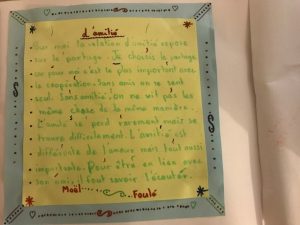 d'amitié
Pour moi la relation d'amitié repose
sur le partage. Je choisis le partage
car pour moi c'est le plus important avec
la coopération. Sans ami on se sent
seul. Sans amitié, on ne vit pas les
même chose de la même manière.
L'amitié se perd rarement mais se
trouve difficilement. L'amitié est
différente de l'amour mais tout aussi
importante. Pour être en lien avec
son ami il faut savoir l'écouter.
Maël Foulé